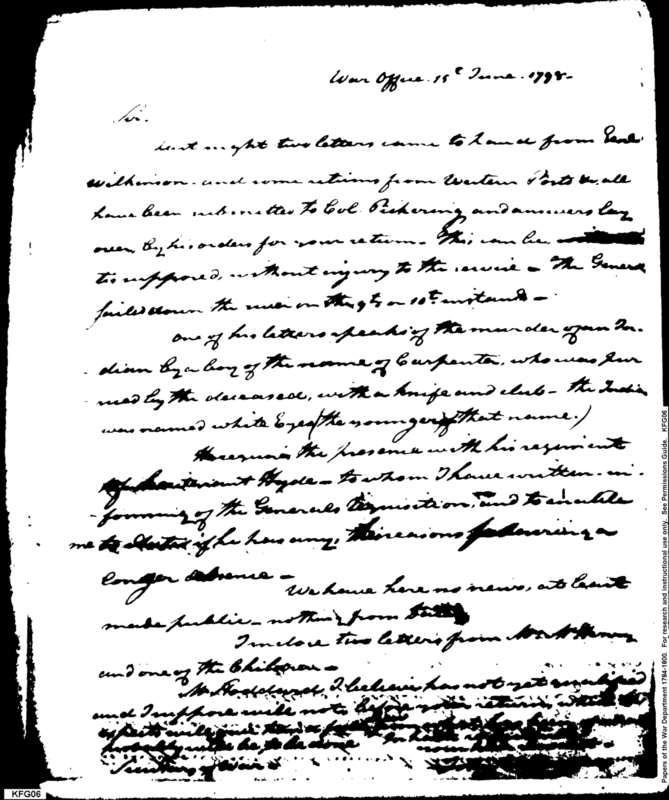 War Office. 15th June. 1798-
Sir.
Last night two letters came to hand from Genl
Wilkinson and some returns from Western Posts &c, all
have been submitted to Col. Pickering and answers lay
over, by his orders for your return - This can be,
tis supposed, without injury to the service - The General
sailed down the river on the 9th or 10th instant -
One of his letters speaks of the murder of an In-
dian by a boy of the name of Carpenter, who was pur
sued by the deceased, with a knife and club - the Indian
was named white Eyes (the younger of that name.)
He requires the presence with his regiment
of Lieutenant Hyde - to whom I have written - in-
forming of the Generals requisition, and to enable
me to state if he has any, the reasons for a
longer absence -
We have here no news, at least
made public - nothing from
I inclose two letters from Mrs McHenry
and one of the Children -
Mr Stoddard, I believe has not yet
and I suppose will not, before your return,
probably will be, to be done
Secretary of War -
KFG06
Papers of the War Department 1784-1800. For research and instructional use only. See Permissions Guide. KFG06